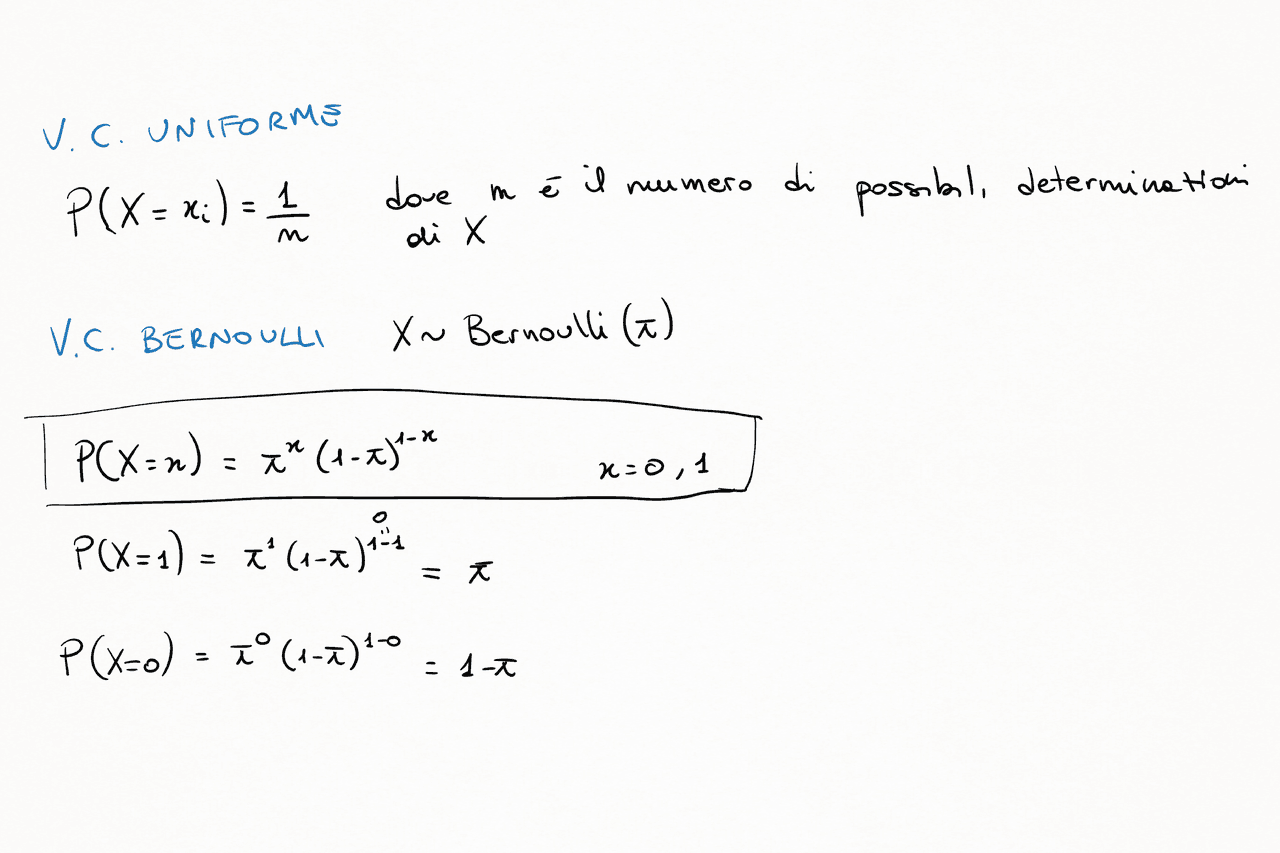 V.C. UNIFORME
P(X = xᵢ) = 1/n dove n è il numero di possibili determinazioni
di X
V.C. BERNOULLI X ~ Bernoulli (π)
P(X=x) = π^x (1-π)^{1-x} x=0,1
P(X=1) = π^1 (1-π)^{1-1 = 0} = π
P(X=0) = π^0 (1-π)^{1-0} = 1-π